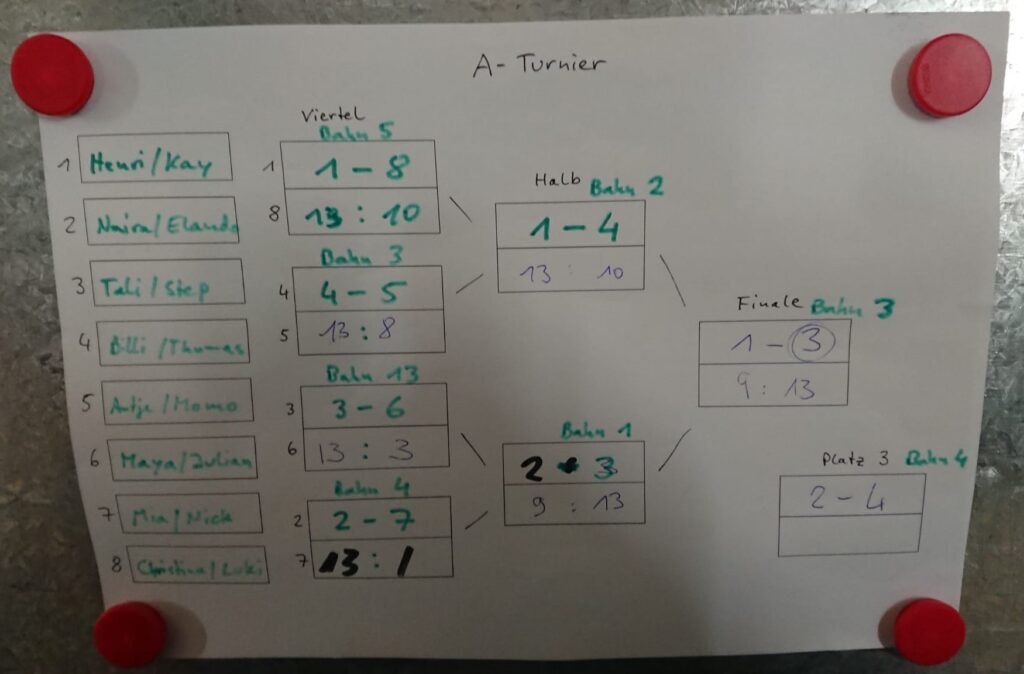 A- Turnier
1 Henri/Kay
2 Naira/Elando
3 Tali/Step
4 Billi/Thomas
5 Antje/Momo
6 Maya/Julian
7 Mia/Nick
8 Christina/Luki
Viertel
Bahn 5
1 1 - 8
8 13 : 10
Bahn 3
4 4 - 5
5 13 : 8
Bahn 13
3 3 - 6
6 13 : 3
Bahn 4
2 2 - 7
7 13 : 1
Halb Bahn 2
1 - 4
13 : 10
Bahn 1
2 - 3
9 : 13
Finale Bahn 3
1 - 3
9 : 13
Platz 3 Bahn 4
2 - 4